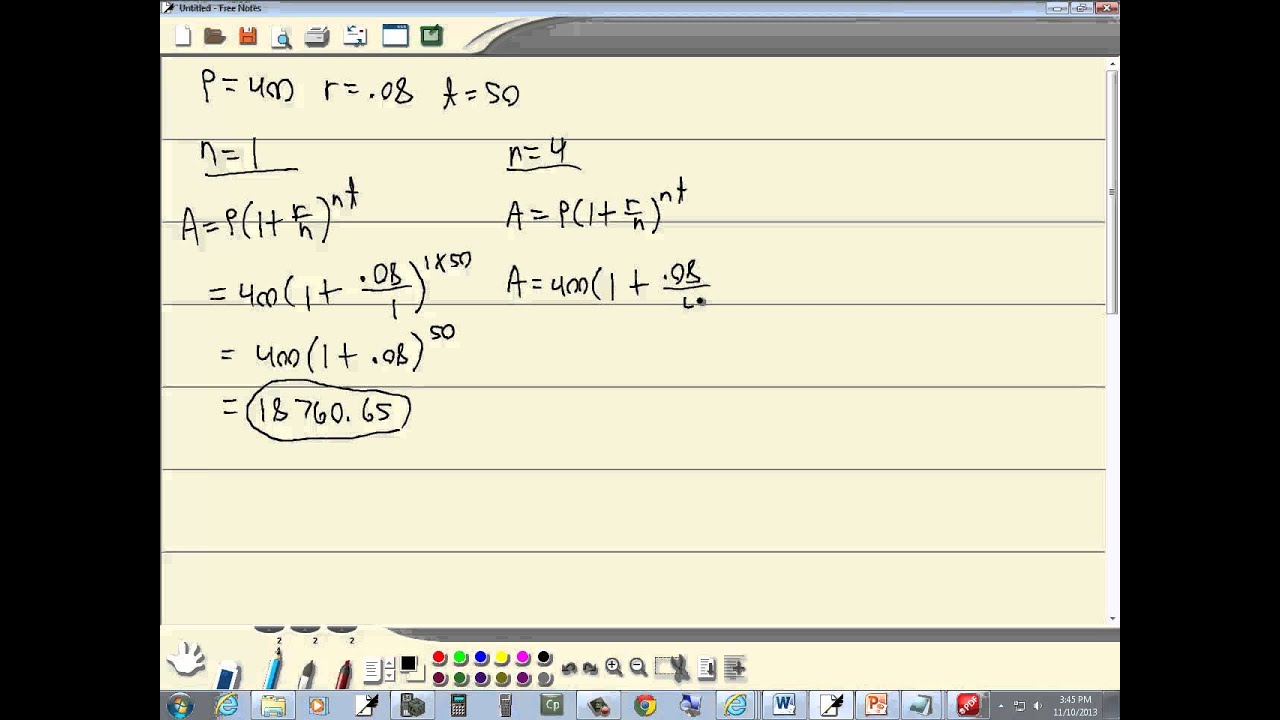 Untitled - Free Notes
P = 400 r = .08 t = 50
n = 1
A = P(1 + r/n)^nt
= 400(1 + .08/1)^1×50
= 400(1 + .08)^50
= 18760.65
n = 4
A = P(1 + r/n)^nt
A = 400(1 + .08/
2 2 2
Cp
W
P
PDF
3:45 PM
11/10/2013